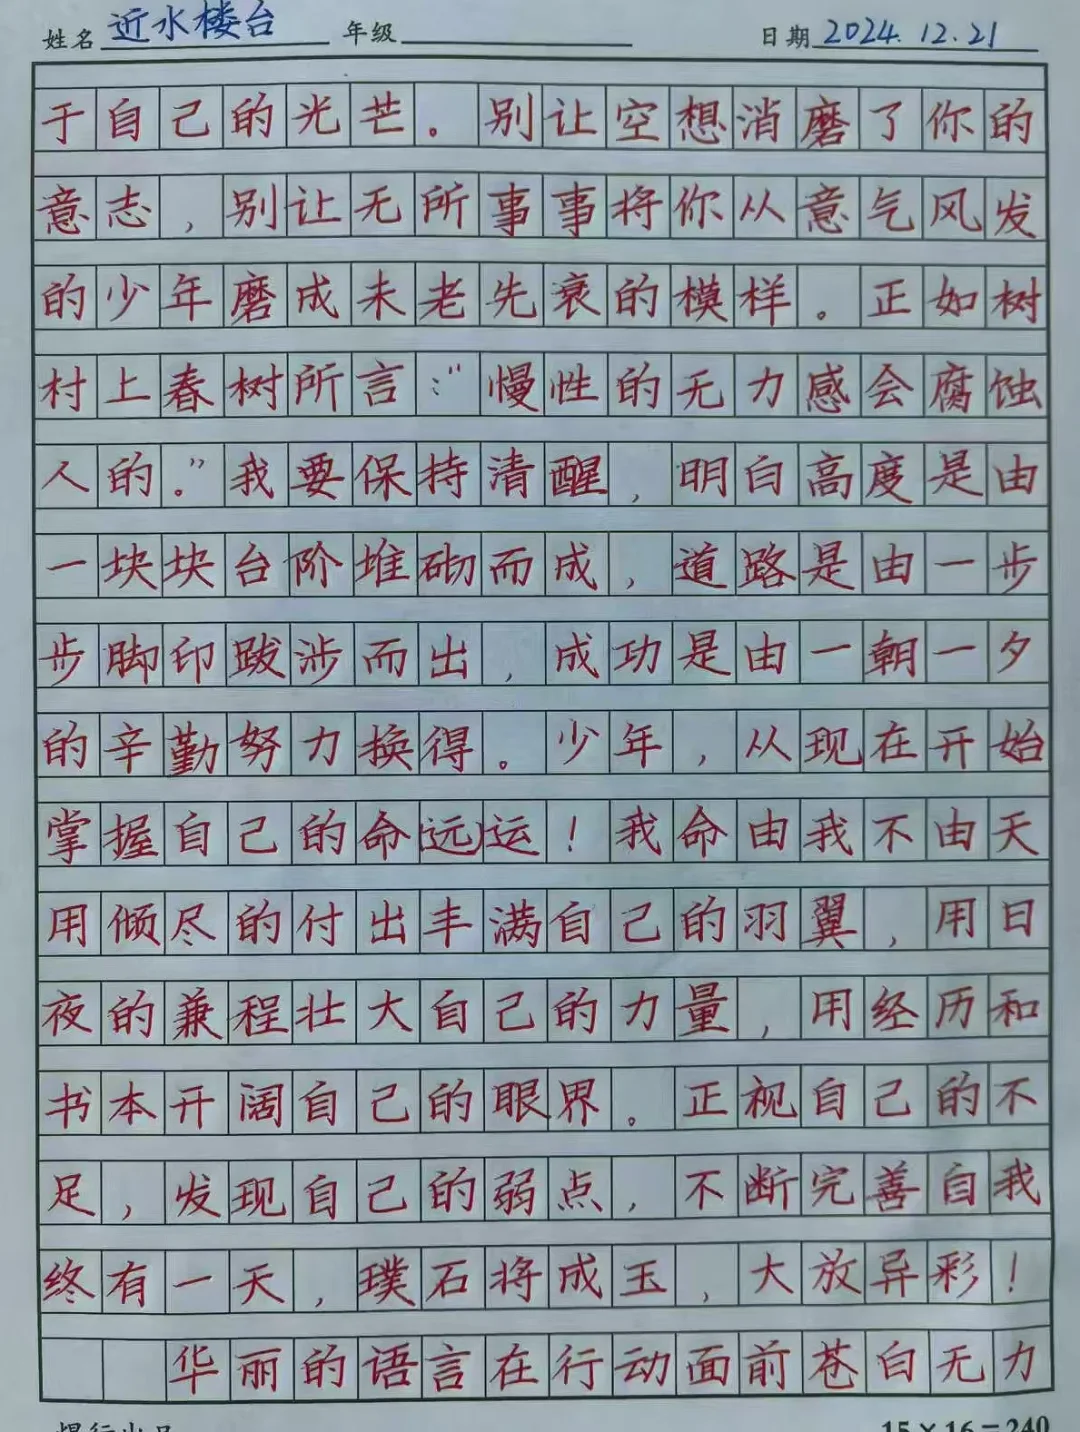 姓名 近水楼台 年级 日期 2024.12.21
于自己的光芒。别让空想消磨了你的
意志，别让无所事事将你从意气风发
的少年磨成未老先衰的模样。正如树
村上春树所言：“慢性的无力感会腐蚀
人的。”我要保持清醒，明白高度是由
一块块台阶堆砌而成，道路是由一步
步脚印跋涉而出，成功是由一朝一夕
的辛勤努力换得。少年，从现在开始
掌握自己的命远运！我命由我不由天
用倾尽的付出丰满自己的羽翼，用日
夜的兼程壮大自己的力量，用经历和
书本开阔自己的眼界。正视自己的不
足，发现自己的弱点，不断完善自我
终有一天，璞石将成玉，大放异彩！
华丽的语言在行动面前苍白无力
15×16=240